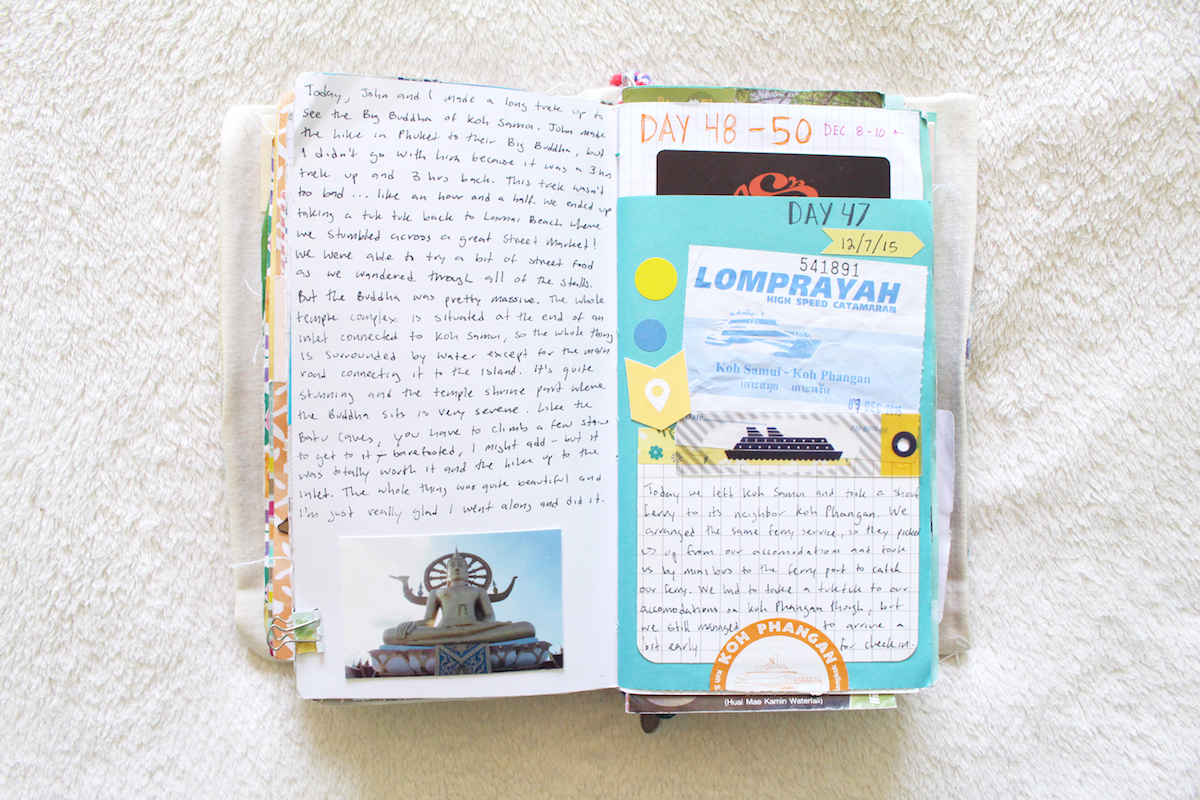 Today, John and I made a long trek up to
see the Big Buddha of Koh Samui. John made
the hike in Phuket to their Big Buddha, but
I didn't go with him because it was a 3 hrs
trek up and 3 hrs back. This trek wasn't
too bad... like an hour and a half. We ended up
taking a tuk tuk back to Lamai Beach where
we stumbled across a great street market!
We were able to try a bit of street food
as we wandered through all of the stalls.
But the Buddha was pretty massive. The whole
temple complex is situated at the end of an
inlet connected to Koh Samui, so the whole thing
is surrounded by water except for the main
road connecting it to the island. It's quite
stunning and the temple shrine part where
the Buddha sits is very serene. Like the
Batu Caves, you have to climb a few stairs
to get to it - barefooted, I might add - but it
was totally worth it and the hike up to the
inlet. The whole thing was quite beautiful and
I'm just really glad I went along and did it.
DAY 48-50 DEC 8-10
DAY 47
12/7/15
541891
LOMPRAYAH
HIGH SPEED CATAMARAN
Koh Samui - Koh Phangan
เกาะสมุย เกาะพงัน
07 DEC 2015
Date
Today we left Koh Samui and took a short
ferry to its neighbor Koh Phangan. We
arranged the same ferry service, so they picked
us up from our accomodations and took
us by minibus to the ferry port to catch
our ferry. We had to take a tuktuk to our
accomodations on Koh Phangan though, but
we still managed to arrive a
bit early for check in.
KOH PHANGAN
(Huai Mae Kamin Waterfall)